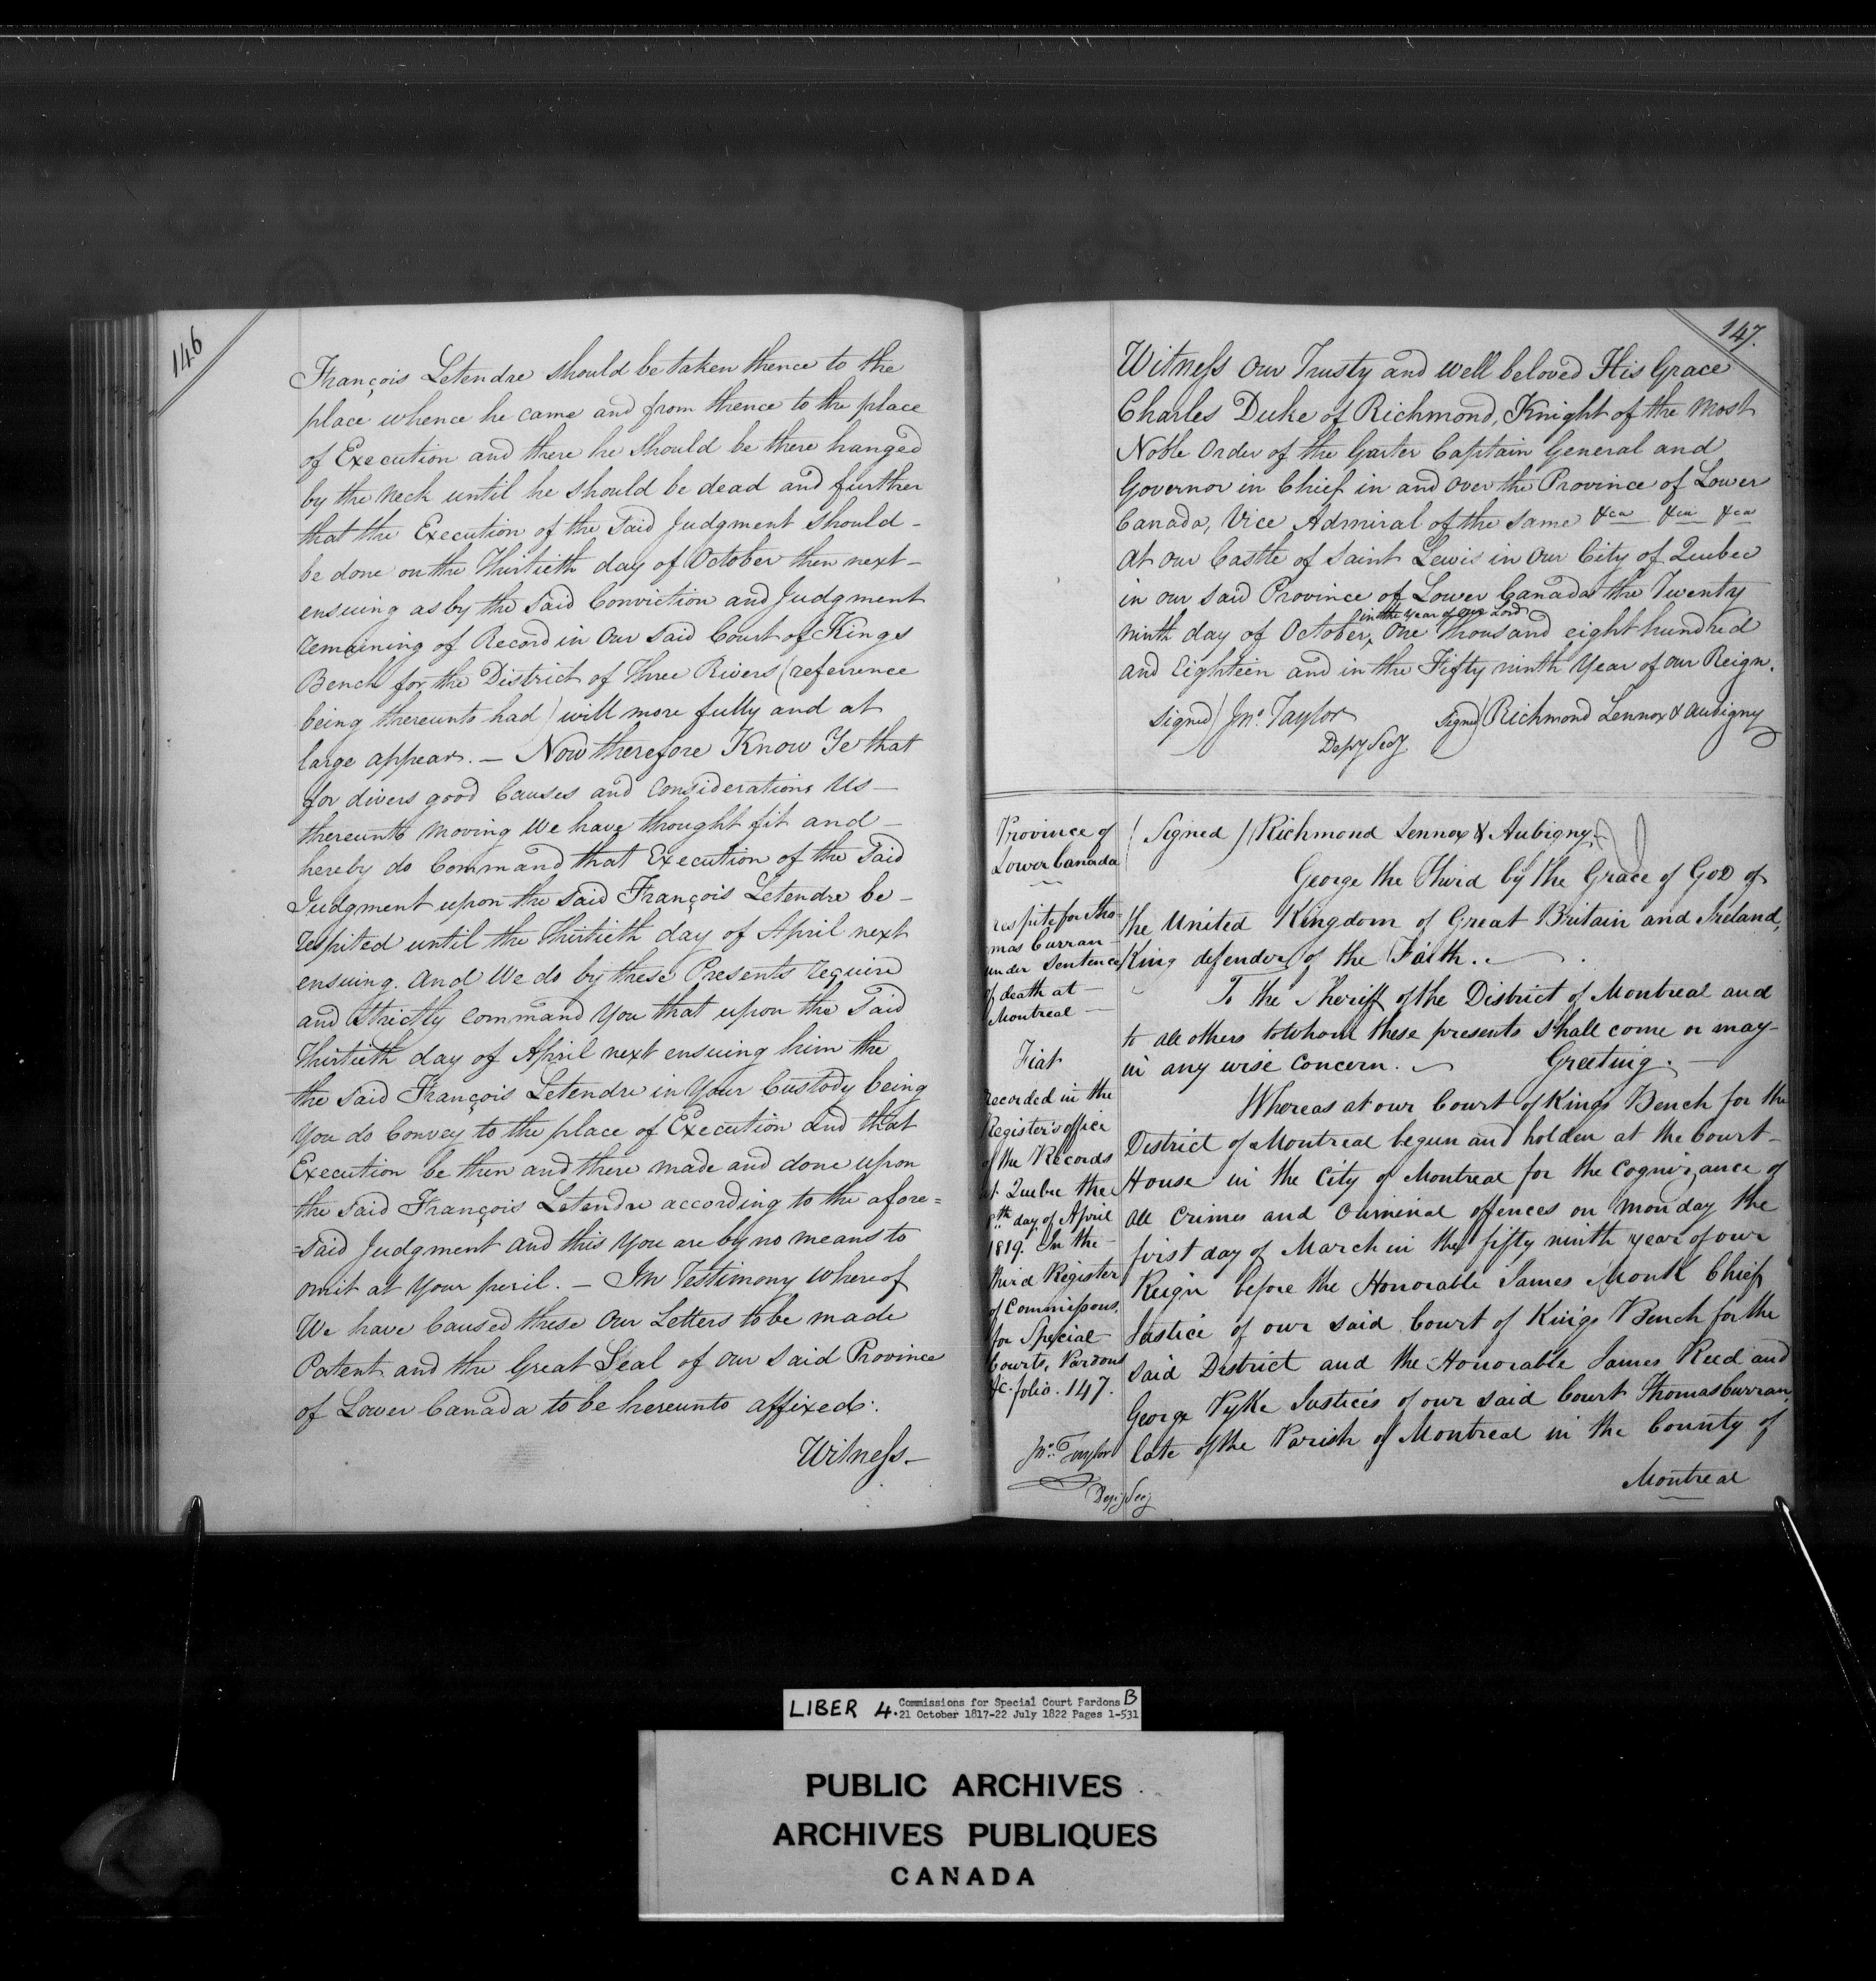 146
François Letendre should be taken thence to the
place whence he came and from thence to the place
of Execution and there he should be there hanged
by the neck until he should be dead and further
that the Execution of the Said Judgment should -
be done on the Thirtieth day of October then next -
ensuing as by the Said Conviction and Judgment
remaining of Record in Our Said Court of Kings
Bench for the District of Three Rivers (referrence
being thereunto had) will more fully and at
large appear. — Now therefore Know Ye that
for divers good Causes and Considerations Us —
thereunto moving We have thought fit and —
hereby do Command that Execution of the Said
Judgment upon the Said François Letendre be -
respited until the Thirtieth day of April next
ensuing. And We do by these Presents require
and Strictly command You that upon the Said
Thirtieth day of April next ensuing him the
the Said François Letendre in Your Custody being
You do Convey to the place of Execution and that
Execution be then and there made and done upon
the Said François Letendre according to the afore=
=Said Judgment and this You are by no means to
omit at Your peril. — In Testimony Whereof
We have Caused these Our Letters to be made
Patent and the Great Seal of Our Said Province
of Lower Canada to be hereunto affixed.
Witness —
147.
Witness Our Trusty and Well beloved His Grace
Charles Duke of Richmond, Knight of the Most
Noble Order of the Garter Captain General and
Governor in Chief in and over the Province of Lower
Canada, Vice Admiral of the same &ca &ca &ca
At our Castle of Saint Lewis in Our City of Quebec
in our said Province of Lower Canada the Twenty
in the Year of Our Lord
ninth day of October, One thousand eight hundred
and Eighteen and in the Fifty ninth Year of Our Reign.
Signed) Jno. Taylor Signed) Richmond Lennox & Aubigny
Depy Secy
Province of
Lower Canada
respite for Tho-
mas Curran -
under Sentence
of death at —
Montreal —
Fiat
Recorded in the
Register's office
of the Records
at Quebec the
8th day of April
1819. In the -
third Register
of Commissions,
for Special
Courts, Pardons
&c. folio. 147.
Jno. Taylor
Depy Secy
(Signed) Richmond Lennox & Aubigny
George the Third by the Grace of God of
the United Kingdom of Great Britain and Ireland,
King defender of the Faith.
To the Sheriff of the District of Montreal and
to all others to whom these presents shall come or may -
in any wise concern. Greeting. —
Whereas at our Court of Kings Bench for the
District of Montreal begun and holden at the Court -
House in the City of Montreal for the cognizance of
all crimes and criminal offences on monday the
first day of March in the fifty ninth year of our
Reign before the Honorable James Monk Chief
Justice of our said Court of Kings Bench for the
said District and the Honorable James Reed and
George Pyke Justices of our said Court Thomas Curran,
late of the Parish of Montreal in the County of
Montreal
LIBER 4. Commissions for Special Court Pardons B
21 October 1817-22 July 1822 Pages 1-531
PUBLIC ARCHIVES
ARCHIVES PUBLIQUES
CANADA